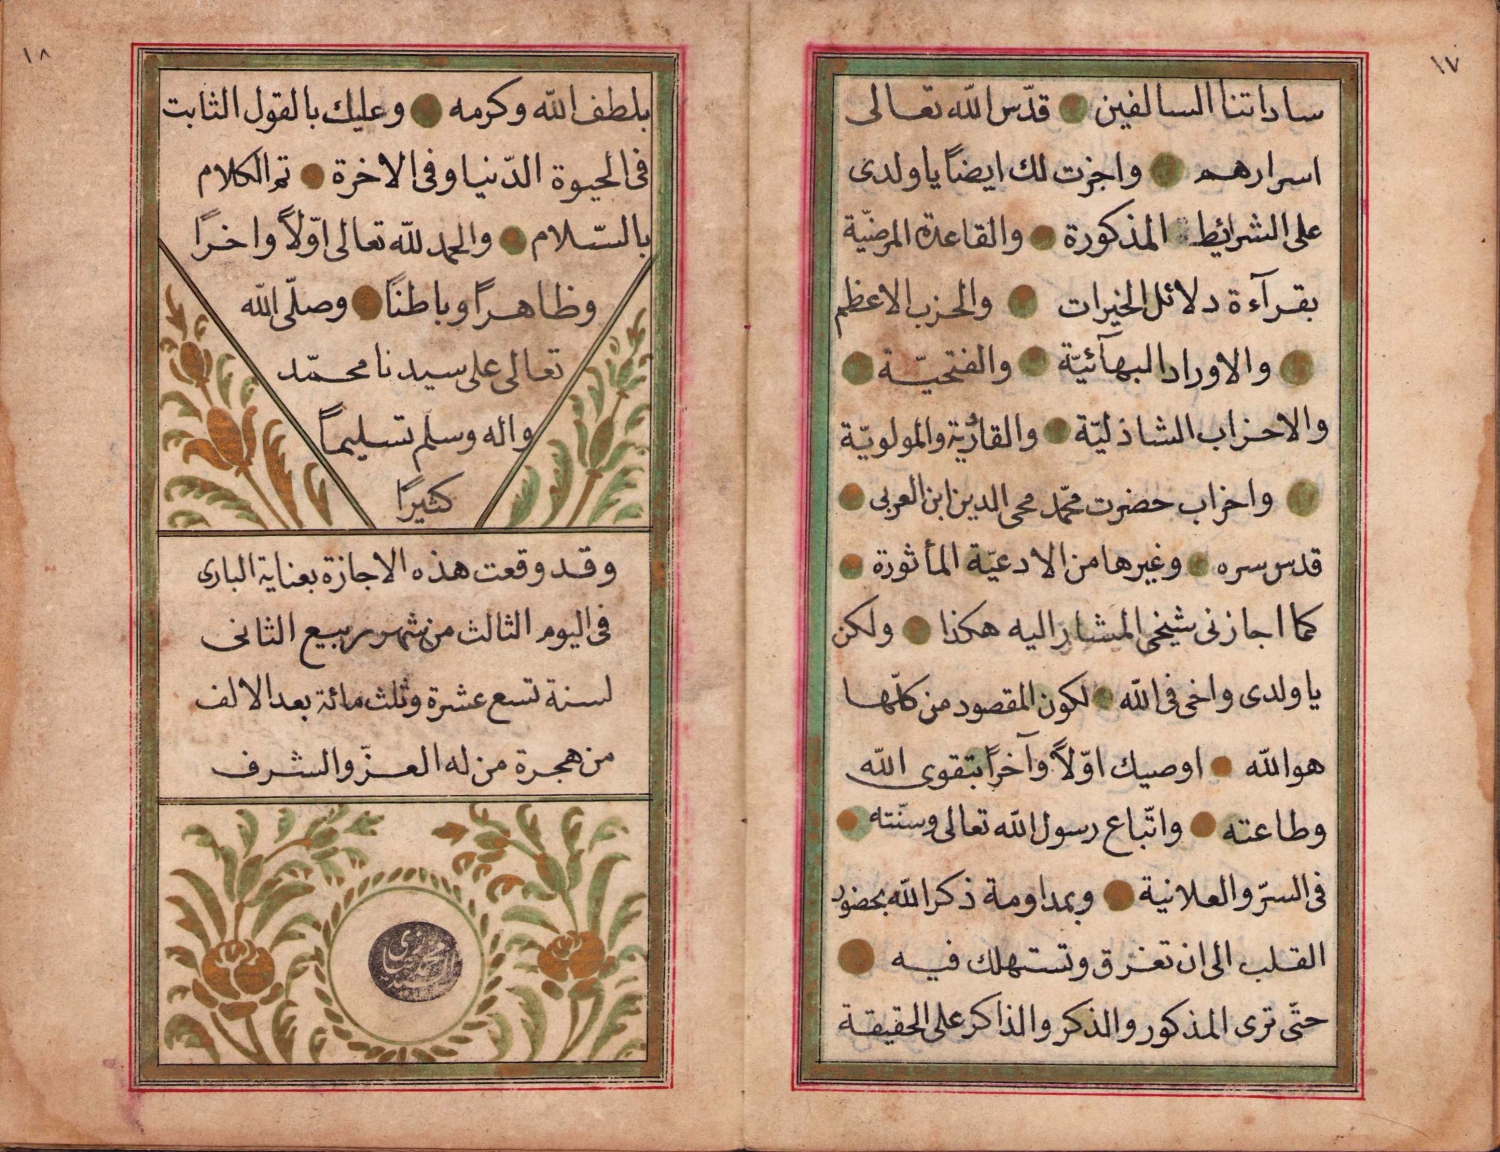 ١٧
ساداتنا السالفين قدّس الله تعالى
اسرارهم واجزت لك ايضاً يا ولدى
على الشرائط المذكورة والقاعدة المرضيّة
بقرآءة دلائل الخيرات والحزب الاعظم
والاوراد البهآئيّة والفتحيّة
والاحزاب الشاذليّة والقادريّة والمولويّة
واحزاب حضرت محمّد محى الدين ابن العربى
قدس سره وغيرها من الادعيّة المأثورة
كما اجازنى شيخى المشار اليه هكذا ولكن
يا ولدى واخى فى الله لكون المقصود من كلّها
هو الله اوصيك اوّلاً وآخراً بتقوى الله
وطاعته واتّباع رسول الله تعالى وسنّته
فى السرّ والعلانية وبمداومة ذكر الله بحضور
القلب الى ان تغرق وتستهلك فيه
حتّى ترى المذكور والذكر والذاكر على الحقيقة
١٨
بلطف الله وكرمه وعليك بالقول الثابت
فى الحيوة الدّنيا وفى الاخرة تم الكلام
بالسّلام والحمد للّه تعالى اوّلاً واخراً
وظاهراً وباطناً وصلّى الله
تعالى على سيدنا محمّد
واله وسلم تسليماً
كثيراً
وقد وقعت هذه الاجازة بعناية البارى
فى اليوم الثالث من شهر ربيع الثانى
لسنة تسع عشرة وثلث مائة بعد الالف
من هجرة من له العزّ والشرف